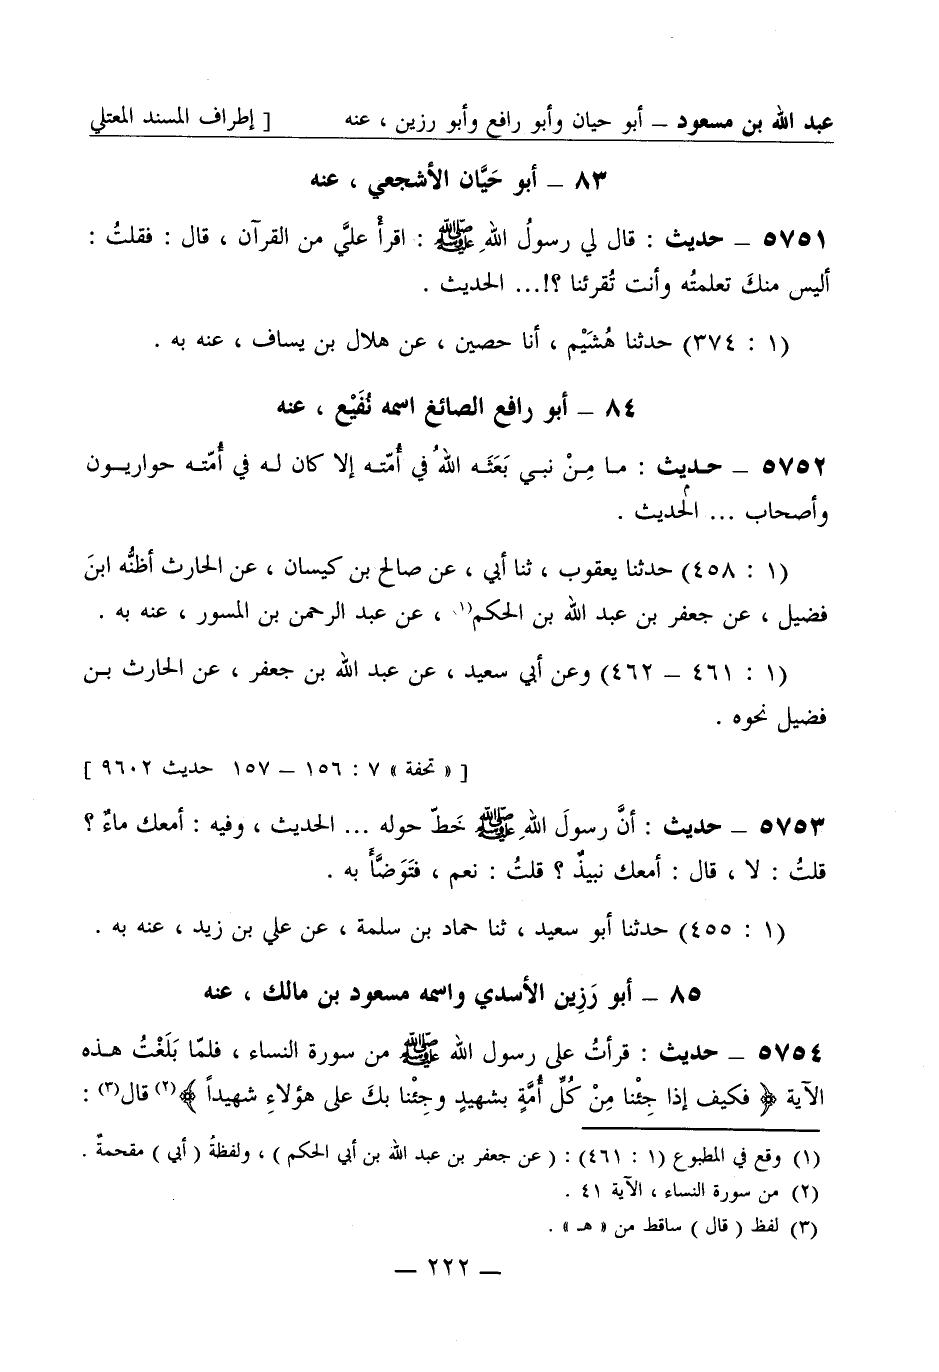 عبد الله بن مسعود – أبو حيان وأبو رافع وأبو رزين ، عنه [ إطراف المسند المعتلي
٨٣ – أبو حَيَّان الأشجعي ، عنه
٥٧٥١ – حديث : قال لي رسولُ اللهِ ﷺ : اقرأْ عليَّ من القرآن ، قال : فقلتُ :
أليس منكَ تعلمتُه وأنت تُقرئنا ؟!... الحديث .
(١ : ٣٧٤) حدثنا هُشَيْم ، أنا حصين ، عن هلال بن يساف ، عنه به .
٨٤ – أبو رافع الصائغ اسمه نُفَيْع ، عنه
٥٧٥٢ – حديث : ما مِنْ نبي بَعَثَه اللهُ في أُمّته إلا كان له في أُمّته حواريون
وأصحاب ... الحديث .
(١ : ٤٥٨) حدثنا يعقوب ، ثنا أبي ، عن صالح بن كيسان ، عن الحارث أظنُّه ابنَ
فضيل ، عن جعفر بن عبد الله بن الحكم(١) ، عن عبد الرحمن بن المسور ، عنه به .
(١ : ٤٦١ – ٤٦٢) وعن أبي سعيد ، عن عبد الله بن جعفر ، عن الحارث بن
فضيل نحوه .
[ « تحفة » ٧ : ١٥٦ – ١٥٧ حديث ٩٦٠٢ ]
٥٧٥٣ – حديث : أنَّ رسولَ اللهِ ﷺ خَطّ حوله ... الحديث ، وفيه : أمعك ماءٌ ؟
قلتُ : لا ، قال : أمعك نبيذٌ ؟ قلتُ : نعم ، فتَوَضَّأَ به .
(١ : ٤٥٥) حدثنا أبو سعيد ، ثنا حماد بن سلمة ، عن علي بن زيد ، عنه به .
٨٥ – أبو رَزِين الأسدي واسمه مسعود بن مالك ، عنه
٥٧٥٤ – حديث : قرأتُ على رسول الله ﷺ من سورة النساء ، فلمّا بَلَغْتُ هذه
الآية ﴿ فكيف إذا جِئْنا مِنْ كُلِّ أُمَّةٍ بشهيدٍ وجِئْنا بكَ على هؤلاءِ شهيداً ﴾(٢) قال(٣) :
(١) وقع في المطبوع (١ : ٤٦١) : ( عن جعفر بن عبد الله بن أبي الحكم ) ، ولفظةُ ( أبي ) مقحمةٌ .
(٢) من سورة النساء ، الآية ٤١ .
(٣) لفظ ( قال ) ساقط من « هـ » .
– ٢٢٢ –